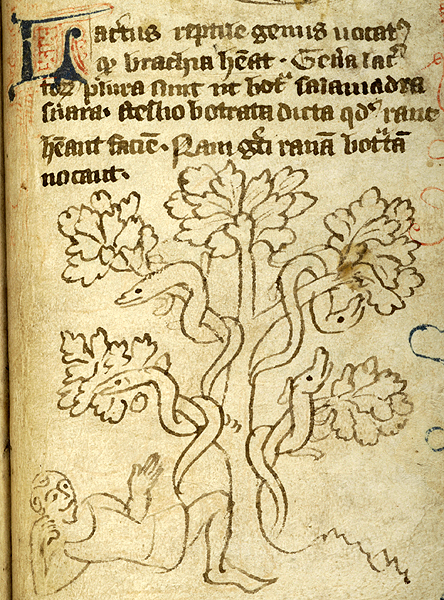 Lactus reptile genus uocat᷑
qͥ brachia hēat · Gen̄a lac̄
toꝝ plura sunt ut botͬ salamādra
saura · stellio botrata dicta qdͩ rane
hēant faciē · Nam gͬci ranā botͬcā
uocant ·